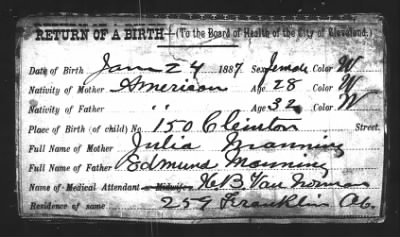 RETURN OF A BIRTH—(To the Board of Health of the City of Cleveland.)
Date of Birth Jan 24 1887 Sex Female Color W
Nativity of Mother American Age 28 Color W
Nativity of Father " Age 32 Color W
Place of Birth (of child) No 150 Clinton Street.
Full Name of Mother Julia Manning
Full Name of Father Edmund Manning
Name of Medical Attendant or Midwife H B Van Norman
Residence of same 259 Franklin Av.